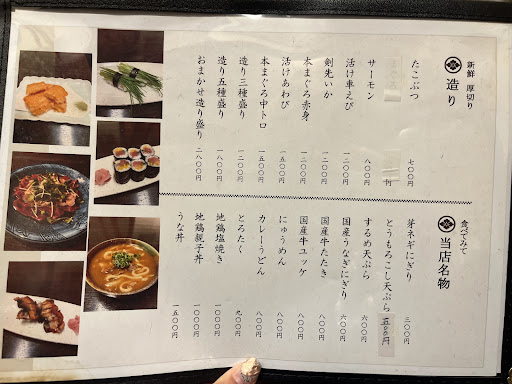 新鮮 厚切り
造り
たこぶつ 七〇〇円
円
サーモン 八〇〇円
活け車えび 一二〇〇円
剣先いか
本まぐろ赤身 一二〇〇円
活けあわび 一五〇〇円
本まぐろ中トロ 一五〇〇円
造り三種盛り 一二〇〇円
造り五種盛り 一八〇〇円
おまかせ造り盛り 二八〇〇円
食べてみて
当店名物
芽ネギにぎり 三〇〇円
とうもろこし天ぷら 五〇〇円
するめ天ぷら 六〇〇円
国産うなぎにぎり 六〇〇円
国産牛たたき 八〇〇円
国産牛ユッケ 八〇〇円
にゅうめん 八〇〇円
カレーうどん 八〇〇円
とろたく 九〇〇円
地鶏塩焼き 一〇〇〇円
地鶏親子丼 一〇〇〇円
うな丼 一五〇〇円